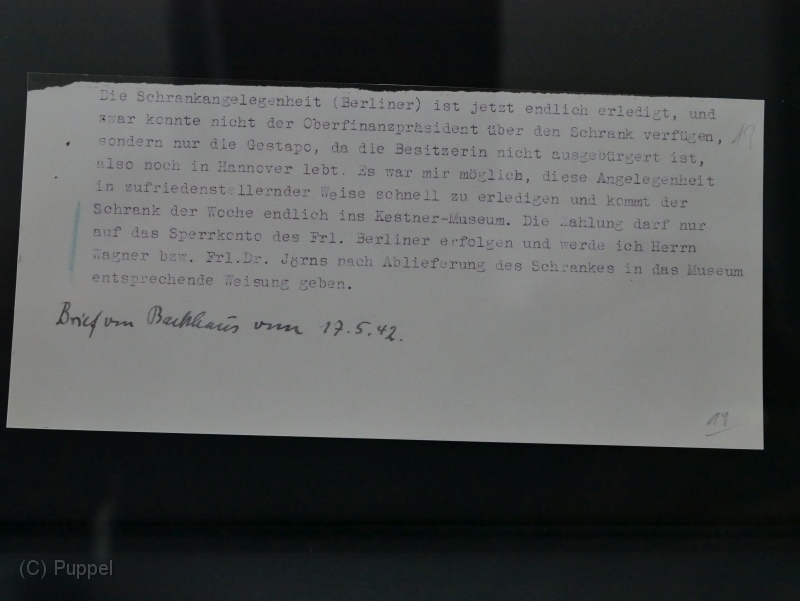 Die Schrankangelegenheit (Berliner) ist jetzt endlich erledigt, und
zwar konnte nicht der Oberfinanzpräsident über den Schrank verfügen,
19
sondern nur die Gestapo, da die Besitzerin nicht ausgebürgert ist,
also noch in Hannover lebt. Es war mir möglich, diese Angelegenheit
in zufriedenstellernder Weise schnell zu erledigen und kommt der
Schrank der Woche endlich ins Kestner-Museum. Die Zahlung darf nur
auf das Sperrkonto des Frl. Berliner erfolgen und werde ich Herrn
Wagner bzw. Frl.Dr. Jörns nach Ablieferung des Schrankes in das Museum
entsprechende Weisung geben.
Brief von Backhaus vom 17.5.42.
19
(C) Puppel